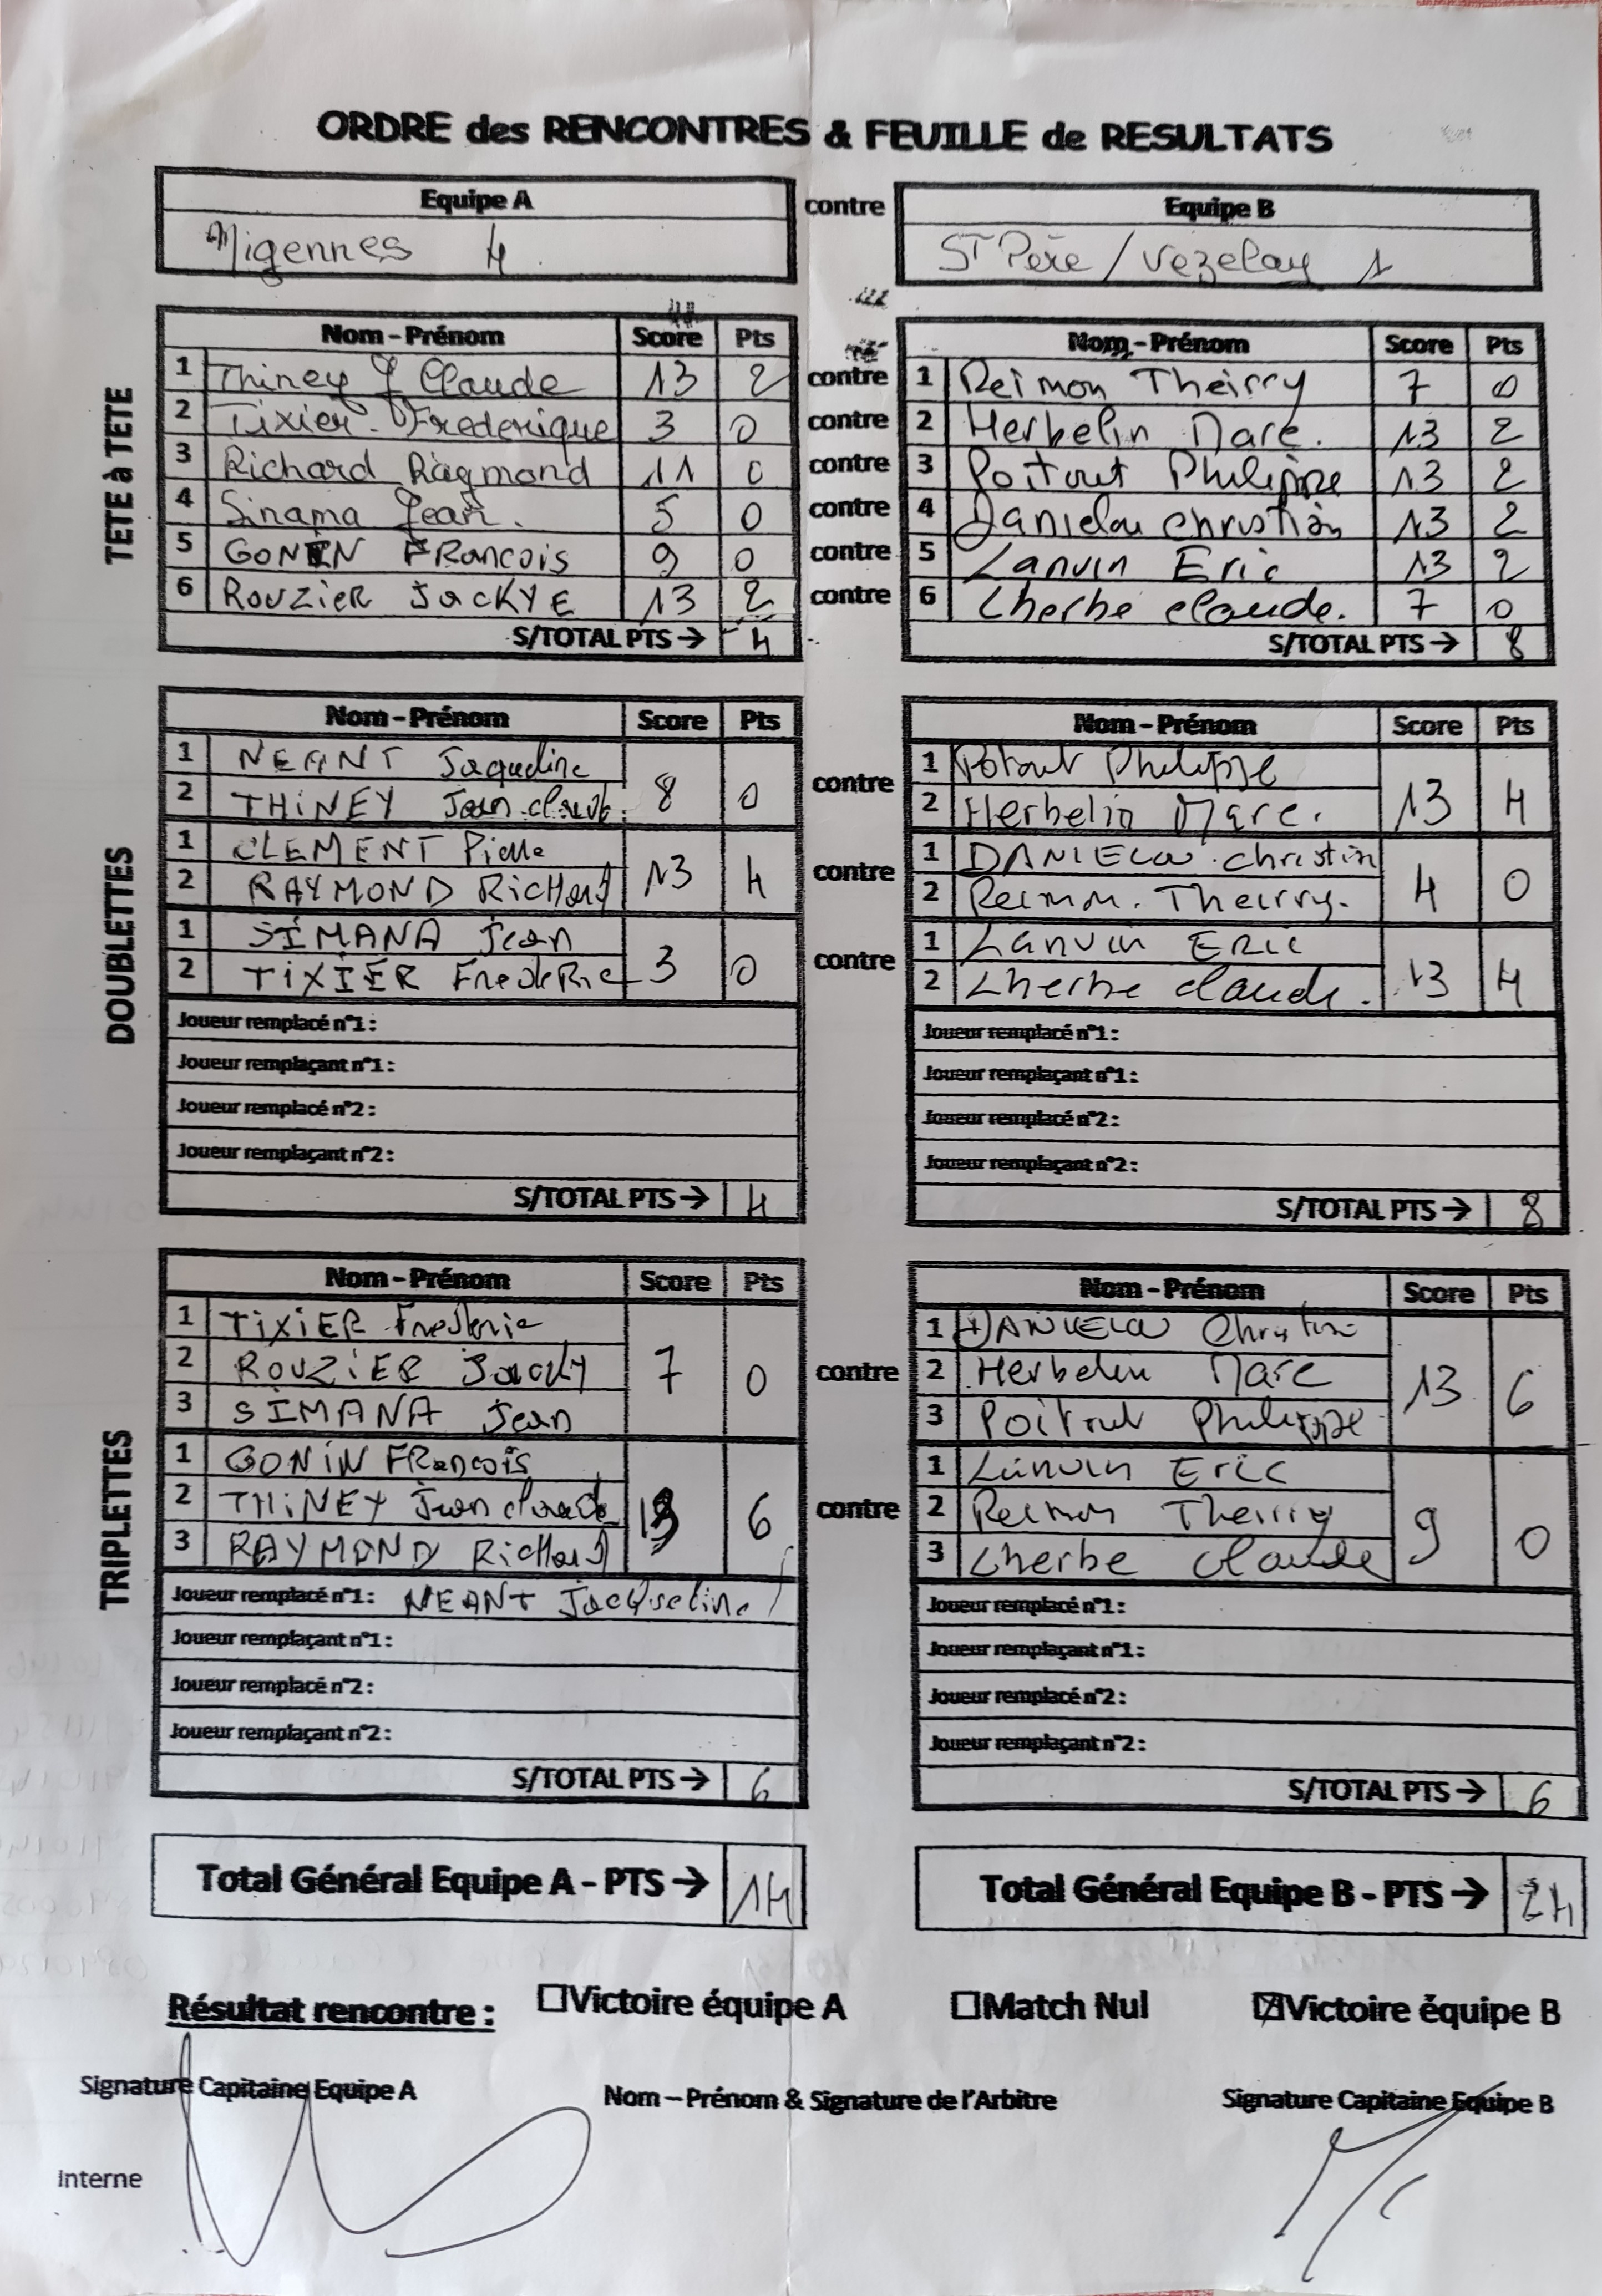 ORDRE des RENCONTRES & FEUILLE de RESULTATS
Equipe A contre Equipe B
Migennes 4 ST Père / Vezelay 1
Nom - Prénom Score Pts Nom - Prénom Score Pts
TETE à TETE
1 Thiney J Claude 13 2 contre 1 Reimon Theirry 7 0
2 Tixier Frederique 3 0 contre 2 Herbelin Marc. 13 2
3 Richard Raymond 11 0 contre 3 Poitout Philippe 13 2
4 Sinama Jean. 5 0 contre 4 Danielou christian 13 2
5 GONIN FRancois 9 0 contre 5 Lanvin Eric 13 2
6 ROUZIER JacKYE 13 2 contre 6 Lherbe claude. 7 0
S/TOTAL PTS → 4 S/TOTAL PTS → 8
Nom - Prénom Score Pts Nom - Prénom Score Pts
DOUBLETTES
1 NEANT Jaqueline 1 Potout Philippe
8 0 contre 13 4
2 THINEY Jean claude. 2 Herbelin Marc.
1 CLEMENT Pierre 1 DANIELOU christian
13 4 contre 4 0
2 RAYMOND RicHard 2 Reimon. Theirry.
1 SIMANA Jean 1 Lanvin ERic
3 0 contre 13 4
2 TIXIER FredeRic 2 Lherbe claude.
Joueur remplacé n°1 : Joueur remplacé n°1 :
Joueur remplaçant n°1 : Joueur remplaçant n°1 :
Joueur remplacé n°2 : Joueur remplacé n°2 :
Joueur remplaçant n°2 : Joueur remplaçant n°2 :
S/TOTAL PTS → 4 S/TOTAL PTS → 8
Nom - Prénom Score Pts Nom - Prénom Score Pts
TRIPLETTES
1 TIXIER Frederic 1 DANIELOU Christian
2 ROUZIER Jacky 7 0 contre 2 Herbelin Marc 13 6
3 SIMANA Jean 3 Poitout Philippe
1 GONIN FRancois 1 Lanvin Eric
2 THINEY Jean claude 13 6 contre 2 Reimon Theirry 9 0
3 RAYMOND RicHard 3 Lherbe Claude
Joueur remplacé n°1 : NEANT Jacqueline Joueur remplacé n°1 :
Joueur remplaçant n°1 : Joueur remplaçant n°1 :
Joueur remplacé n°2 : Joueur remplacé n°2 :
Joueur remplaçant n°2 : Joueur remplaçant n°2 :
S/TOTAL PTS → 6 S/TOTAL PTS → 6
Total Général Equipe A - PTS → 14 Total Général Equipe B - PTS → 24
Résultat rencontre : ☐Victoire équipe A ☐Match Nul ☒Victoire équipe B
Signature Capitaine Equipe A Nom – Prénom & Signature de l'Arbitre Signature Capitaine Equipe B
Interne